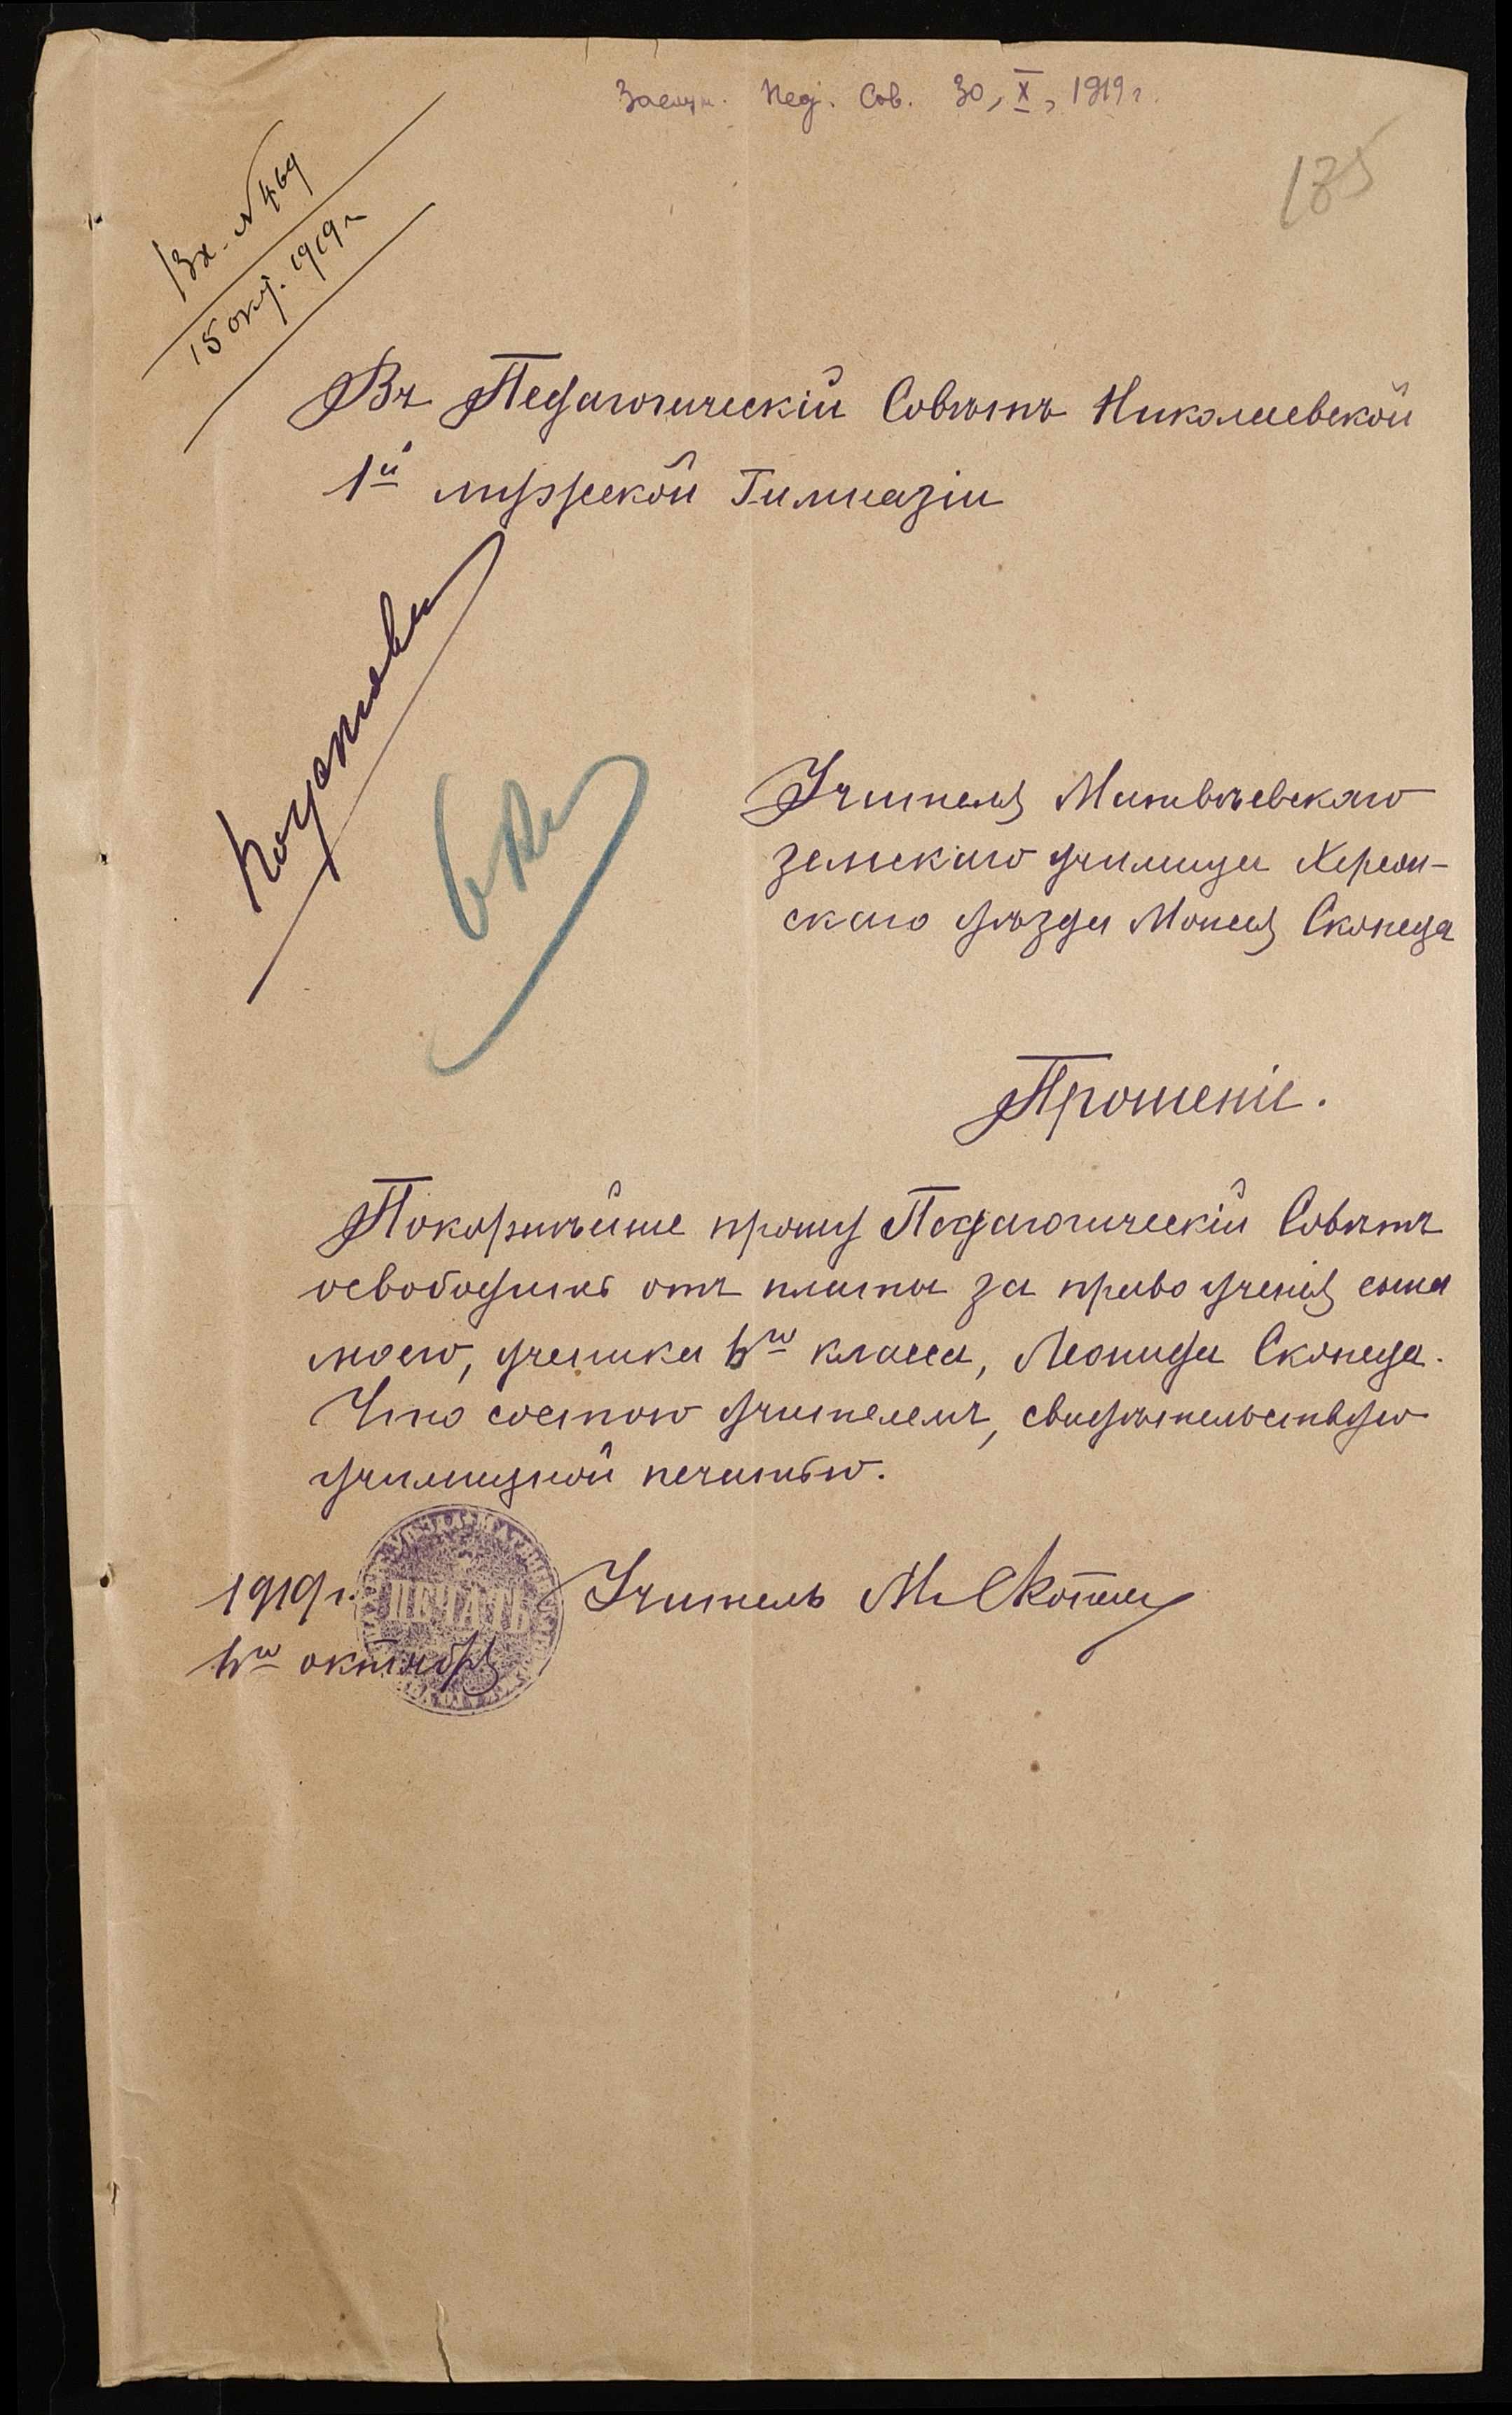 Заслуш. Пед. Сов. 30, X, 1919 г.
135
Вх. №469
15 окт. 1919 г.
Въ Педагогическій Совѣтъ Николаевской
1й мужской Гимназіи
Учителя Матвѣевскаго
земскаго училища Херсон-
скаго уѣзда Моисея Скопеца
Прошеніе.
Покорнѣйше прошу Педагогическій Совѣтъ
освободить отъ платы за право ученія сына
моего, ученика 6го класса, Леонида Скопеца.
Что состою учителемъ, свидѣтельствую
училищной печатью.
1919 г. ПЕЧАТЬ Учитель М. Скопец
октября